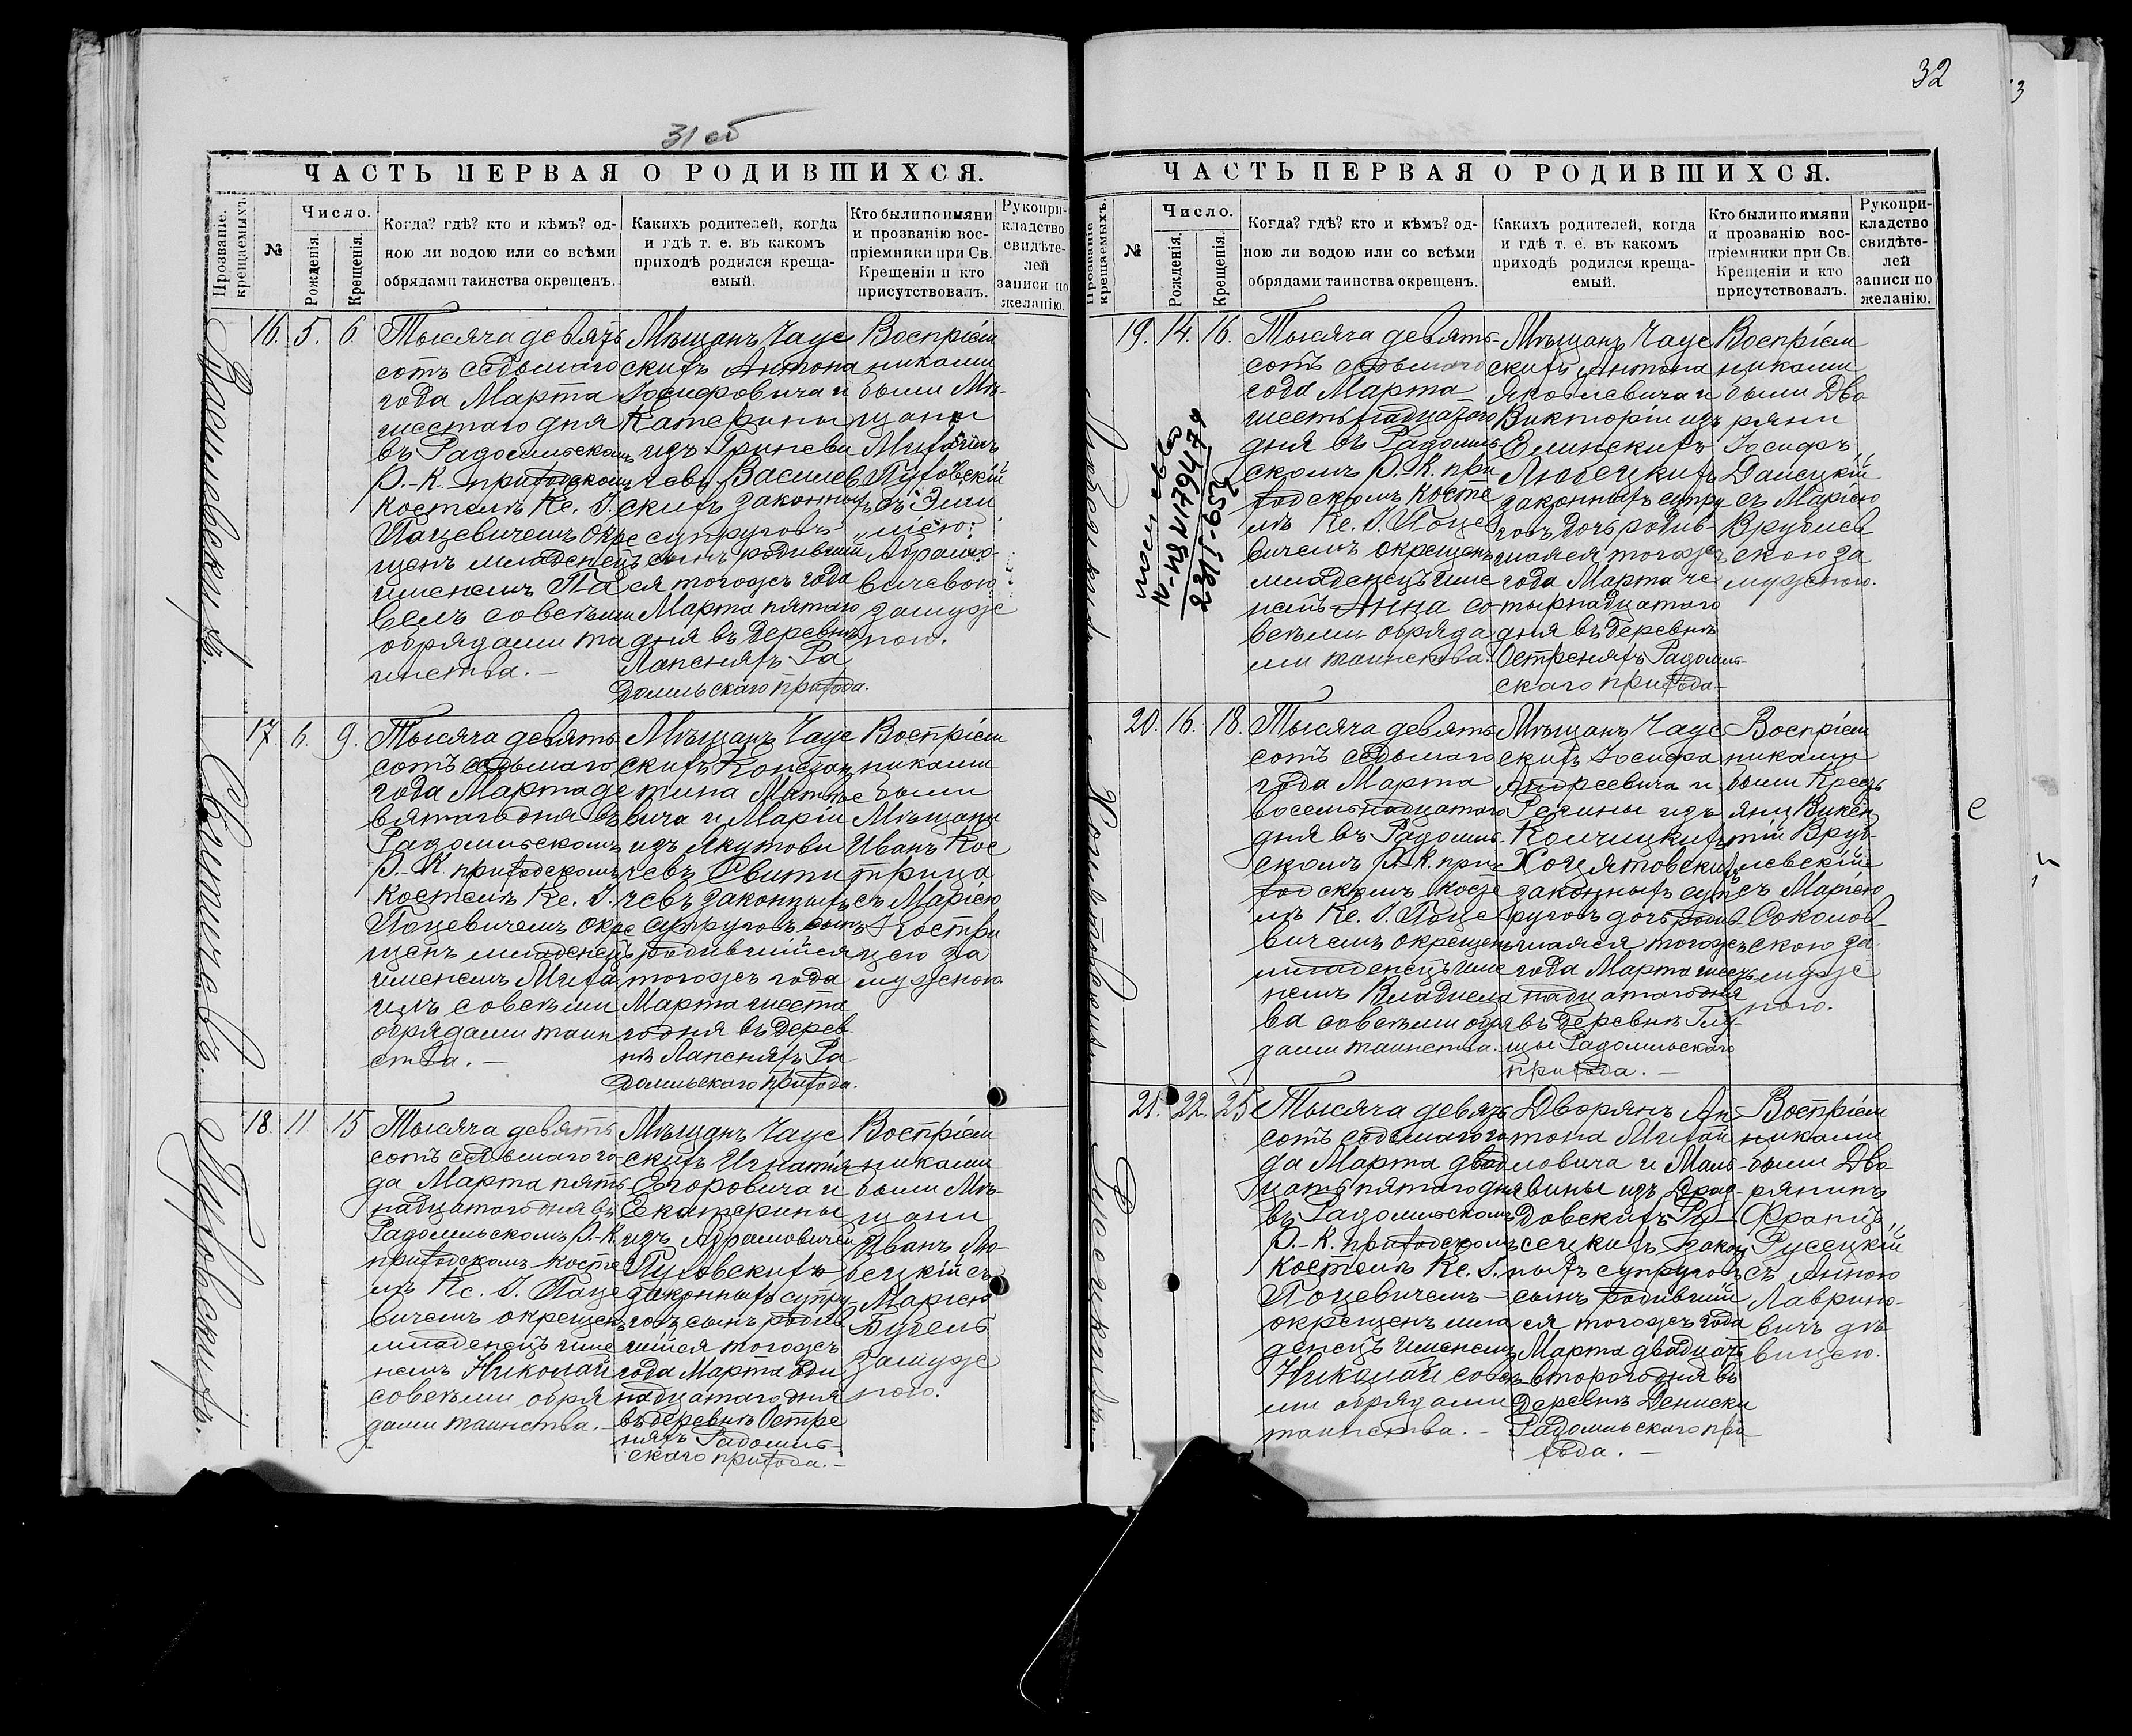 31 об
ЧАСТЬ ПЕРВАЯ О РОДИВШИХСЯ.
Прозваніе крещаемыхъ.
№
Число.
Рожденія.
Крещенія.
Когда? гдѣ? кто и кѣмъ? од-
ною ли водою или со всѣми
обрядами таинства окрещенъ.
Каких​ъ родителей, когда
и гдѣ т. е. въ какомъ
приходѣ родился креща-
емый.
Кто были по имяни
и прозванію вос-
пріемники при Св.
Крещеніи и кто
присутствовалъ.
Рукопри-
кладство
свидѣте-
лей
записи по
желанію.
Василевскихъ.
16. 5. 6.
Тысяча девять
сотъ седьмаго
года Марта
шестаго дня
въ Радомльскомъ
Р.-К. приходскомъ
костелѣ Кс. І.
Пацевичемъ окре
щенъ младенецъ
именемъ Па
велъ со всѣми
обрядами та
инства. —
Мѣщанъ Чаус
скихъ Антона
Іосифовича и
Катерины
изъ Гриневи
чевъ Василев
скихъ законныхъ
супруговъ
сынъ родивший
ся тогоже года
Марта пятаго
дня въ деревнѣ
Лапеняхъ Ра
домльскаго прихода.
Воспріем
никами
были Мѣ-
щане
Михаилъ
Пуховскій
съ Эми
ліею
Абрамо-
вичевою
замуж
ною.
Свитичевъ.
17. 6. 9.
Тысяча девять
сотъ седьмаго
года Марта де
вятаго дня въ
Радомльскомъ
Р.-К. приходскомъ
костелѣ Кс. І.
Пацевичемъ окре
щенъ младенецъ
именемъ Миха
илъ со всѣми
обрядами таин
ства. —
Мѣщанъ Чаус
скихъ Констан
тина Матвѣе
вича и Маріи
изъ Якутови
чевъ Свити
чевъ законныхъ
супруговъ сынъ
родившийся
тогоже года
Марта шеста
го дня въ дерев
нѣ Лапеняхъ Ра
домльскаго прихода.
Воспріем
никами
были
Мѣщане
Иванъ Кос
трица
съ Маріею
Костри
цею за
мужною
Пуховскихъ.
18. 11. 15
Тысяча девять
сотъ седьмаго го-
да Марта пят
надцатаго дня въ
Радомльскомъ Р.-К.
приходскомъ косте
лѣ Кс. І. Паце
вичемъ окрещенъ
младенецъ име
немъ Николай
со всѣми обря
дами таинства. —
Мѣщанъ Чаус
скихъ Игнатія
Егоровича и
Екатерины
изъ Абрамовичей
Пуховскихъ
законныхъ супру
говъ сынъ родив-
шійся тогоже
года Марта оди
надцатаго дня
въ деревнѣ Остре
няхъ Радомль-
скаго прихода. —
Воспріем
никами
были Мѣ-
щане
Иванъ Лю-
бецкій съ
Маріею
замуж
ною.
32
ЧАСТЬ ПЕРВАЯ О РОДИВШИХСЯ.
Прозваніе крещаемыхъ.
№
Число.
Рожденія.
Крещенія.
Когда? гдѣ? кто и кѣмъ? од-
ною ли водою или со всѣми
обрядами таинства окрещенъ.
Какихъ родителей, когда
и гдѣ т. е. въ какомъ
приходѣ родился креща-
емый.
Кто были по имяни
и прозванію вос-
пріемники при Св.
Крещеніи и кто
присутствовалъ.
Рукопри-
кладство
свидѣте-
лей
записи по
желанію.
Любецкихъ.
19. 14. 16.
Тысяча девять-
сотъ седьмаго
года Марта
шестьнадцатаго
дня въ Радомль-
скомъ Р.-К. при
ходскомъ косте
лѣ Кс. І. Паце
вичемъ окрещенъ
младенецъ име
немъ Анна со
всѣми обряда
ми таинства.
Мѣщанъ Чаус
скихъ Антона
Яковлевича и
Викторіи изъ
Елинскихъ
Любецкихъ
законныхъ супру
говъ дочь родив-
шаяся тогоже
года Марта че
тырнадцатаго
дня въ деревнѣ
Остреняхъ Радомль-
скаго прихода —
Воспріем
никами
были Дво
ряне
Іосифъ
съ Маріею
Врублев-
скою за
мужною.
20. 16. 18.
Тысяча девять
сотъ седьмаго
года Марта
восемьнадцатаго
дня въ Радомль-
скомъ Р.-К. при-
ходскомъ косте
лѣ Кс. І. Паце
вичемъ окрещенъ
младенецъ име
немъ Владисла
ва со всѣми обря
дами таинства.
Мѣщанъ Чаус
скихъ Іосифа
Андреевича и
Регины изъ
законныхъ суп
руговъ дочь родив-
шаяся тогоже
года Марта шест
надцатаго дня
въ деревнѣ
Радомльскаго
прихода. —
Воспріем
никами
были Крест
яне Викен
тій Вруб-
левскій
съ Маріею
Соколов
скою за
муж
ною.
с
21. 22. 25
Тысяча девять
сотъ седьмаго го
да Марта двад
цать пятаго дня
въ Радомльскомъ
Р.-К. приходскомъ
костелѣ Кс. І.
Пацевичемъ —
окрещенъ мла
денецъ именемъ
Николай со всѣ
ми обрядами
таинства. —
Дворянъ Ан-
тона Михай
ловича и Маль-
вины изъ
Ру-
сецкихъ закон
ныхъ супруговъ
сынъ родивший
ся тогоже года
Марта двадцать
втораго дня въ
деревнѣ Дениски
Радомльскаго при
хода. —
Воспріем
никами
были Дво-
рянинъ
Францъ
Русецкій
съ Анною
Лаврино-
вичъ дѣ
вицею.